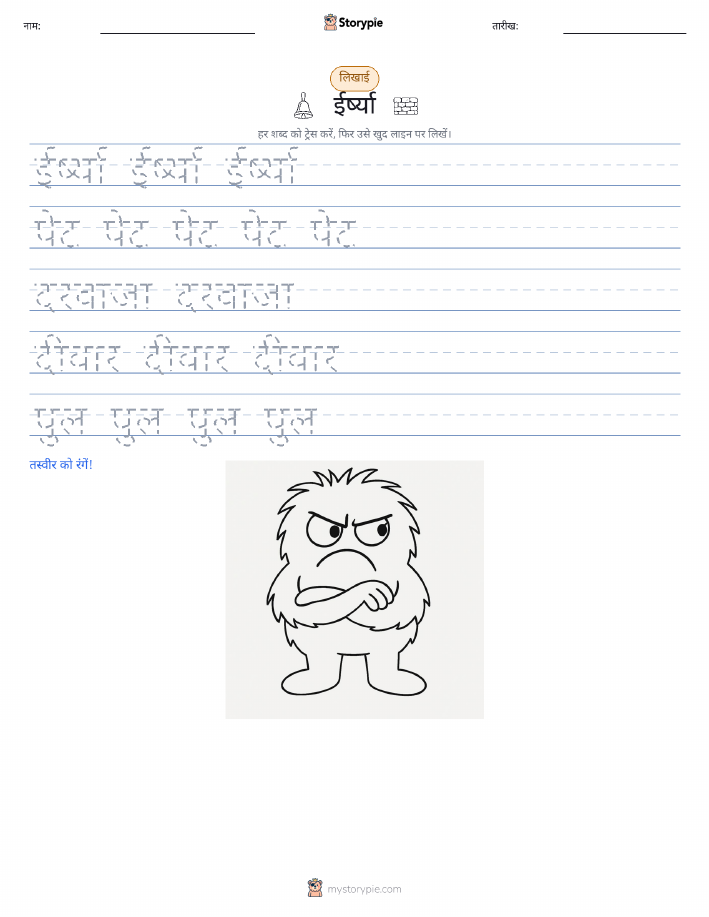 नाम: Storypie तारीख:
लिखाई
ईर्ष्या
हर शब्द को ट्रेस करें, फिर उसे खुद लाइन पर लिखें।
ईर्ष्या ईर्ष्या ईर्ष्या
पेट पेट पेट पेट पेट
दरवाजा दरवाजा
दीवार दीवार दीवार
पुल पुल पुल पुल
तस्वीर को रंगें!
mystorypie.com